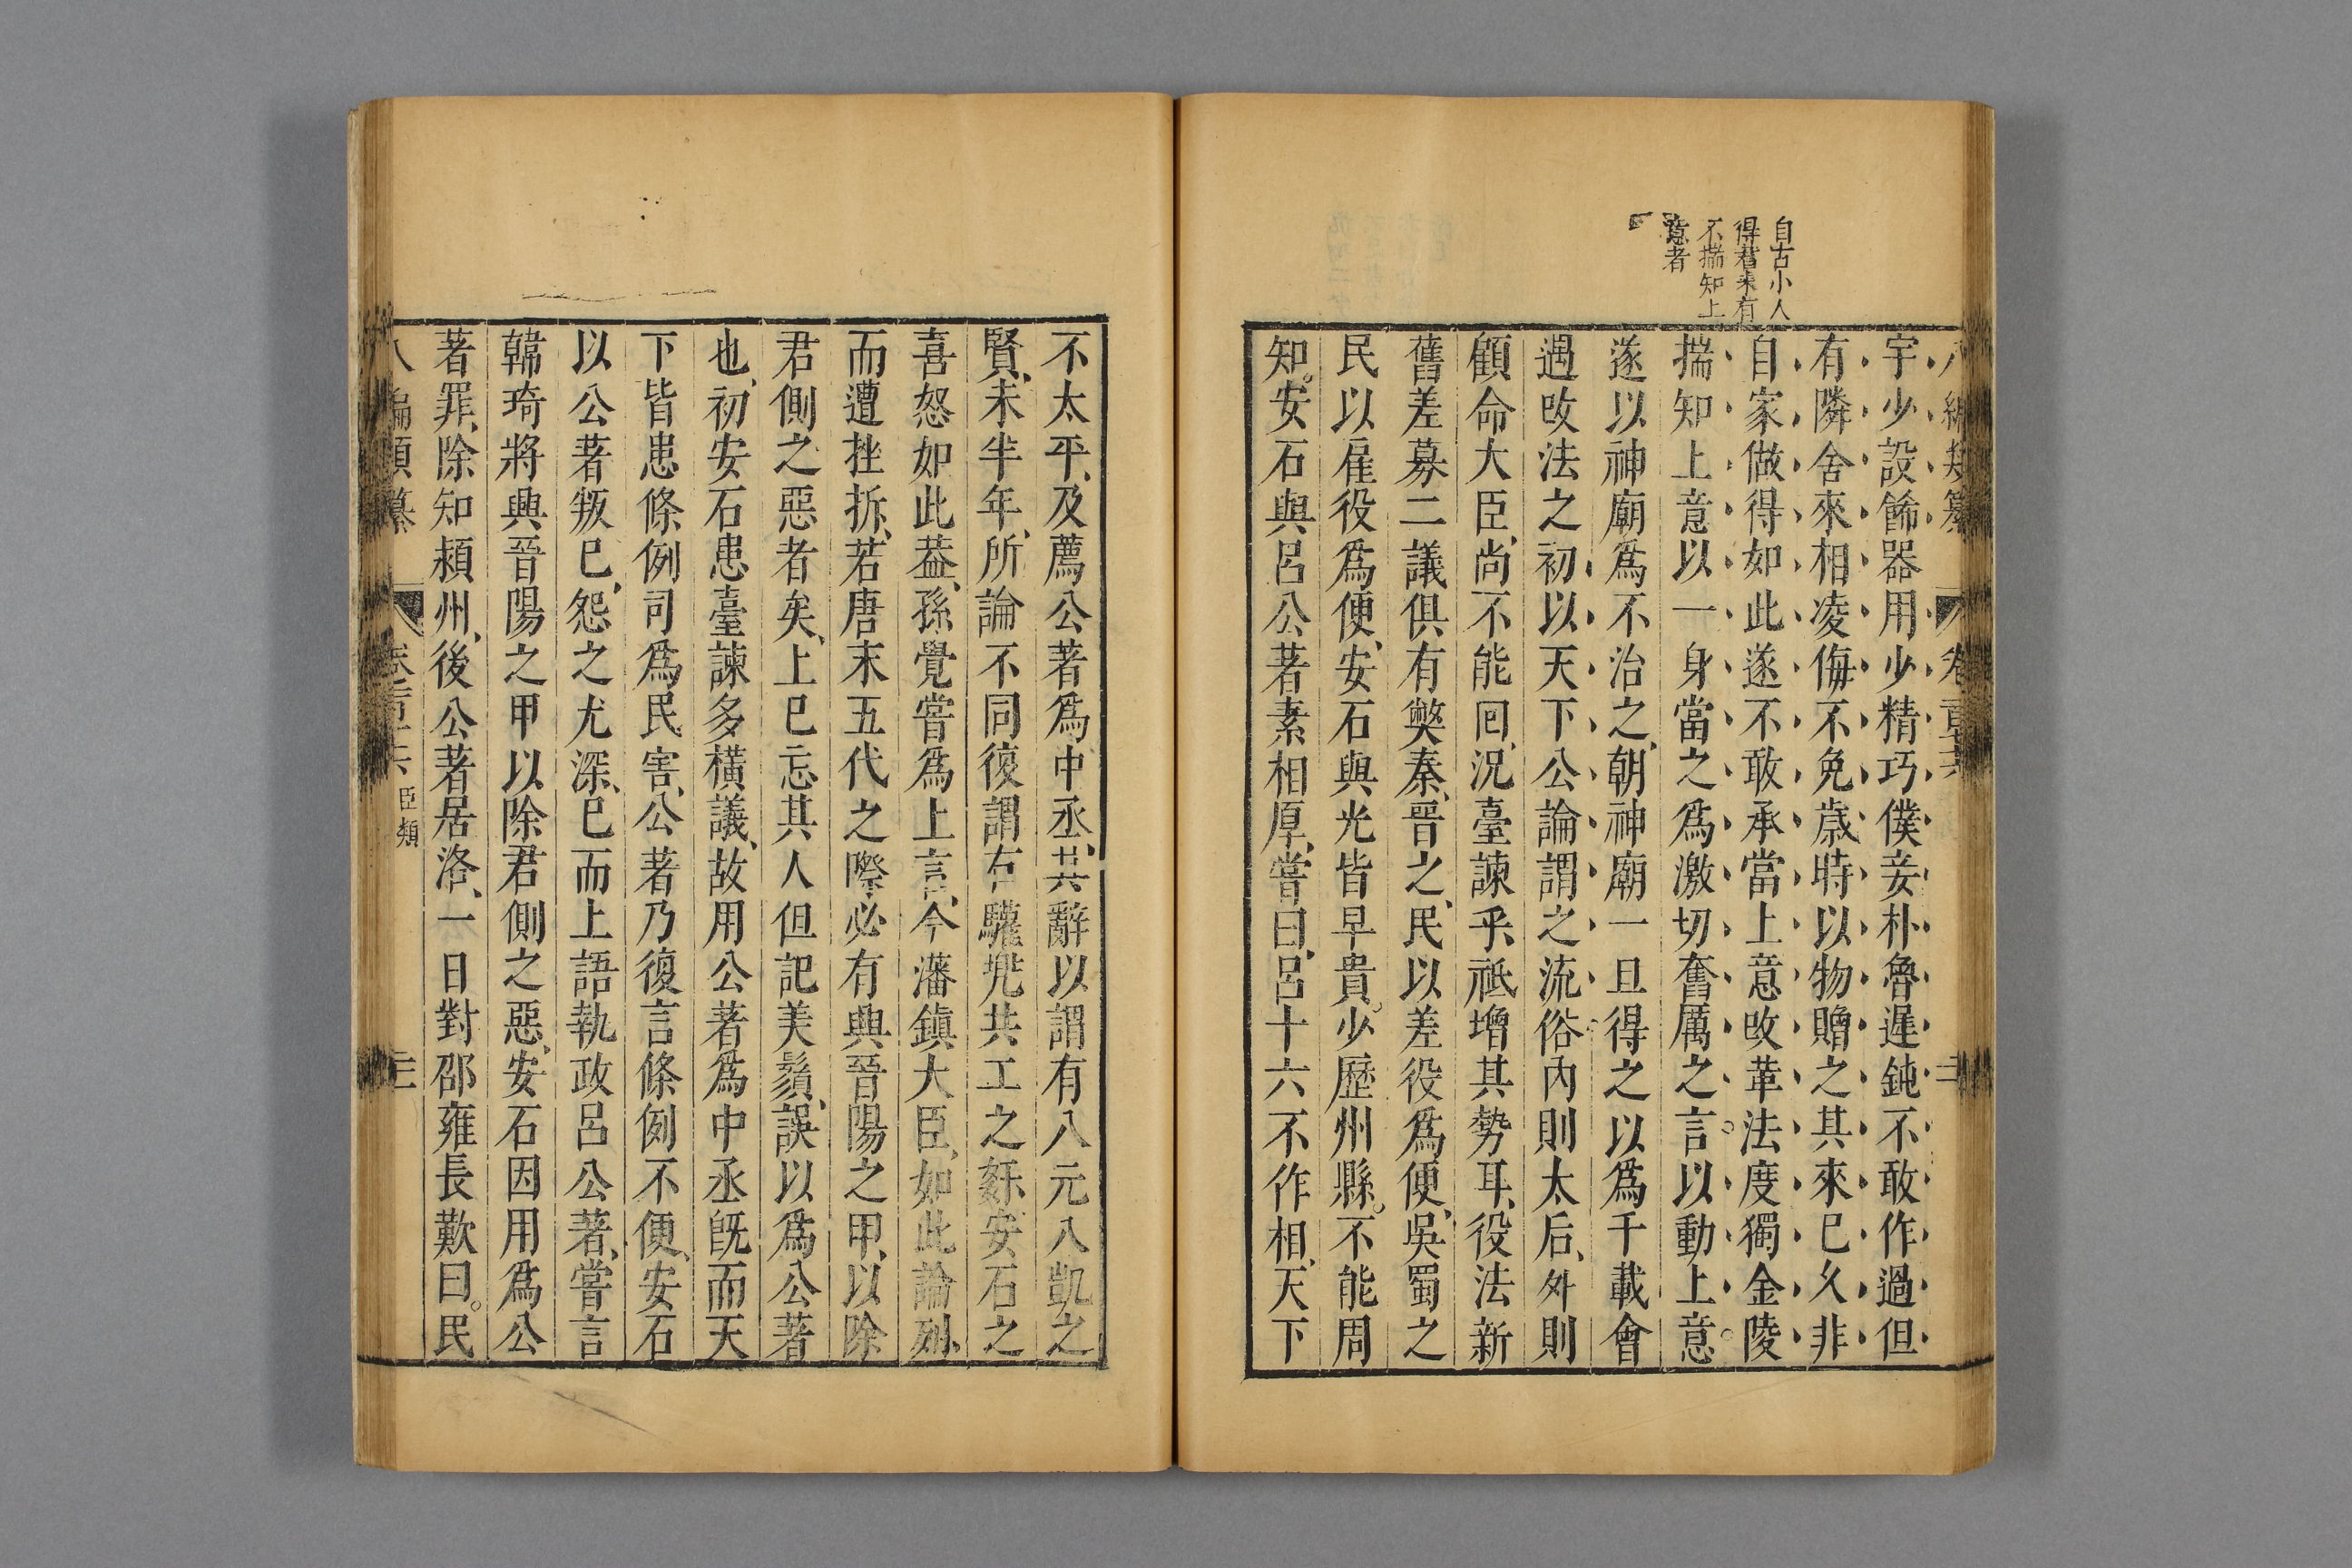 自古小人
得君未有
不揣知上
意者
宇少設餙器用少精巧僕妾朴魯遲鈍不敢作過但
有隣舍來相凌侮不免歲時以物贈之其來已久非
自家做得如此遂不敢承當上意攺革法度獨金陵
揣知上意以一身當之爲激切奮厲之言以動上意
遂以神廟爲不治之朝神廟一旦得之以爲千載會
遇攺法之初以天下公論謂之流俗內則太后外則
顧命大臣尚不能囘况臺諫乎祗增其勢耳役法新
舊差募二議俱有獘秦晉之民以差役爲便吳蜀之
民以雇役爲便安石與光皆早貴少歷州縣不能周
知安石與呂公著素相厚嘗曰呂十六不作相天下
不太平及薦公著爲中丞其辭以謂有八元八凱之
賢未半年所論不同復謂有驩兜共工之姦安石之
喜怒如此葢孫覺嘗爲上言今藩鎮大臣如此論列
而遭挫拆若唐末五代之際必有興晉陽之甲以除
君側之惡者矣上已忘其人但記美鬚誤以爲公著
也初安石患臺諫多橫議故用公著爲中丞旣而天
下皆患條例司爲民害公著乃復言條例不便安石
以公著叛已怨之尤深已而上語執政呂公著嘗言
韓琦將興晉陽之甲以除君側之惡安石因用爲公
著罪除知潁州後公著居洛一日對邵雍長歎曰民
臣類